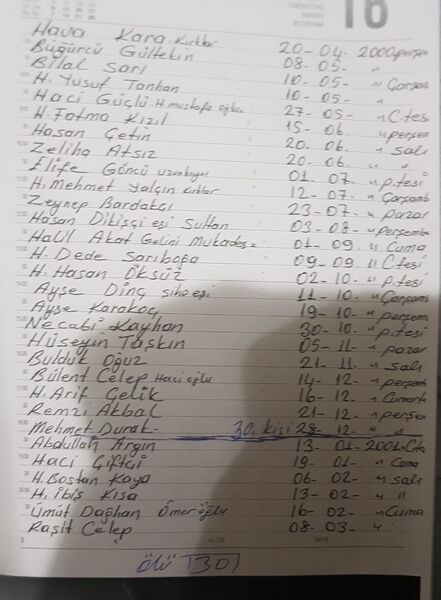 16
Hava Kara Kırklar 20-04-2000 perşem
Büğürcü Gültekin 08-05- "
Bilal Sarı 10-05- " Çarşam
H. Yusuf Tanhan 10-05- "
Haci Güçlü H. mustafa oğlu 27-05- " C.tesi
H. Fatma Kızıl 15-06- " perşem
Hasan Çetin 20-06- " salı
Zeliha Atsız 20-06- " "
Elife Göncü uzunkuyu 01-07- " p.tesi
H. Mehmet Yalçın Kırklar 12-07- " Çarşamb
Zeynep Bardakçı 23-07- " pazar
Hasan Dikişçi eşi Sultan 03-08- " perşemb
Halil Akat Gelini Mukadese 01-09- " Cuma
H. Dede Sarıboğa 09-09 " C.tesi
H. Hasan Öksüz 02-10- " p.tesi
Ayşe Dinç eşi 11-10- " Çarşam
Ayşe Karakoç 19-10- " perşem
Necati Kayhan 30-10- " p.tesi
Hüseyin Taşkın 05-11- " pazar
Bulduk Oğuz 21-11- " salı
Bülent Celep Haci oğlu 14-12- " perşemb
H. Arif Çelik 16-12- " Cumarte
Remzi Akbal 21-12- " perşem
Mehmet Durak- 30. kişi 28-12- " "
Abdullah Argın 13-01-2001-Cte
Haci Çiftçi 19-01- " Cuma
H. Bostan Kaya 06-02- " salı
H. İbiş Kısa 13-02- " "
Ümüt Dağhan Ömeroğlu 16-02- " Cuma
Raşit Celep 08-03- "
ölü 30